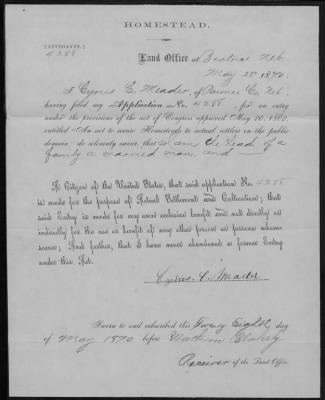 HOMESTEAD.
[AFFIDAVIT.]
4288
Land Office at Beatrice Neb
May 28 1870.
I, Cyrus C. Meader, of Pawnee Co. Neb.
having filed my Application No. 4288, for an entry
under the provisions of the act of Congress approved May 20, 1862,
entitled "An act to secure Homesteads to actual settlers on the public
domain," do solemnly swear, that I am the head of a
family a married man, and
A Citizen of the United States; that said application No. 4288
is made for the purpose of Actual Settlement and Cultivation; that
said Entry is made for my own exclusive benefit and not directly or
indirectly for the use or benefit of any other person or persons whom
soever; And further, that I have never abandoned a former Entry
under this Act.
Cyrus C. Meader
Sworn to and subscribed this Twenty Eighth day
of May 1870 before
Receiver of the Land Office.